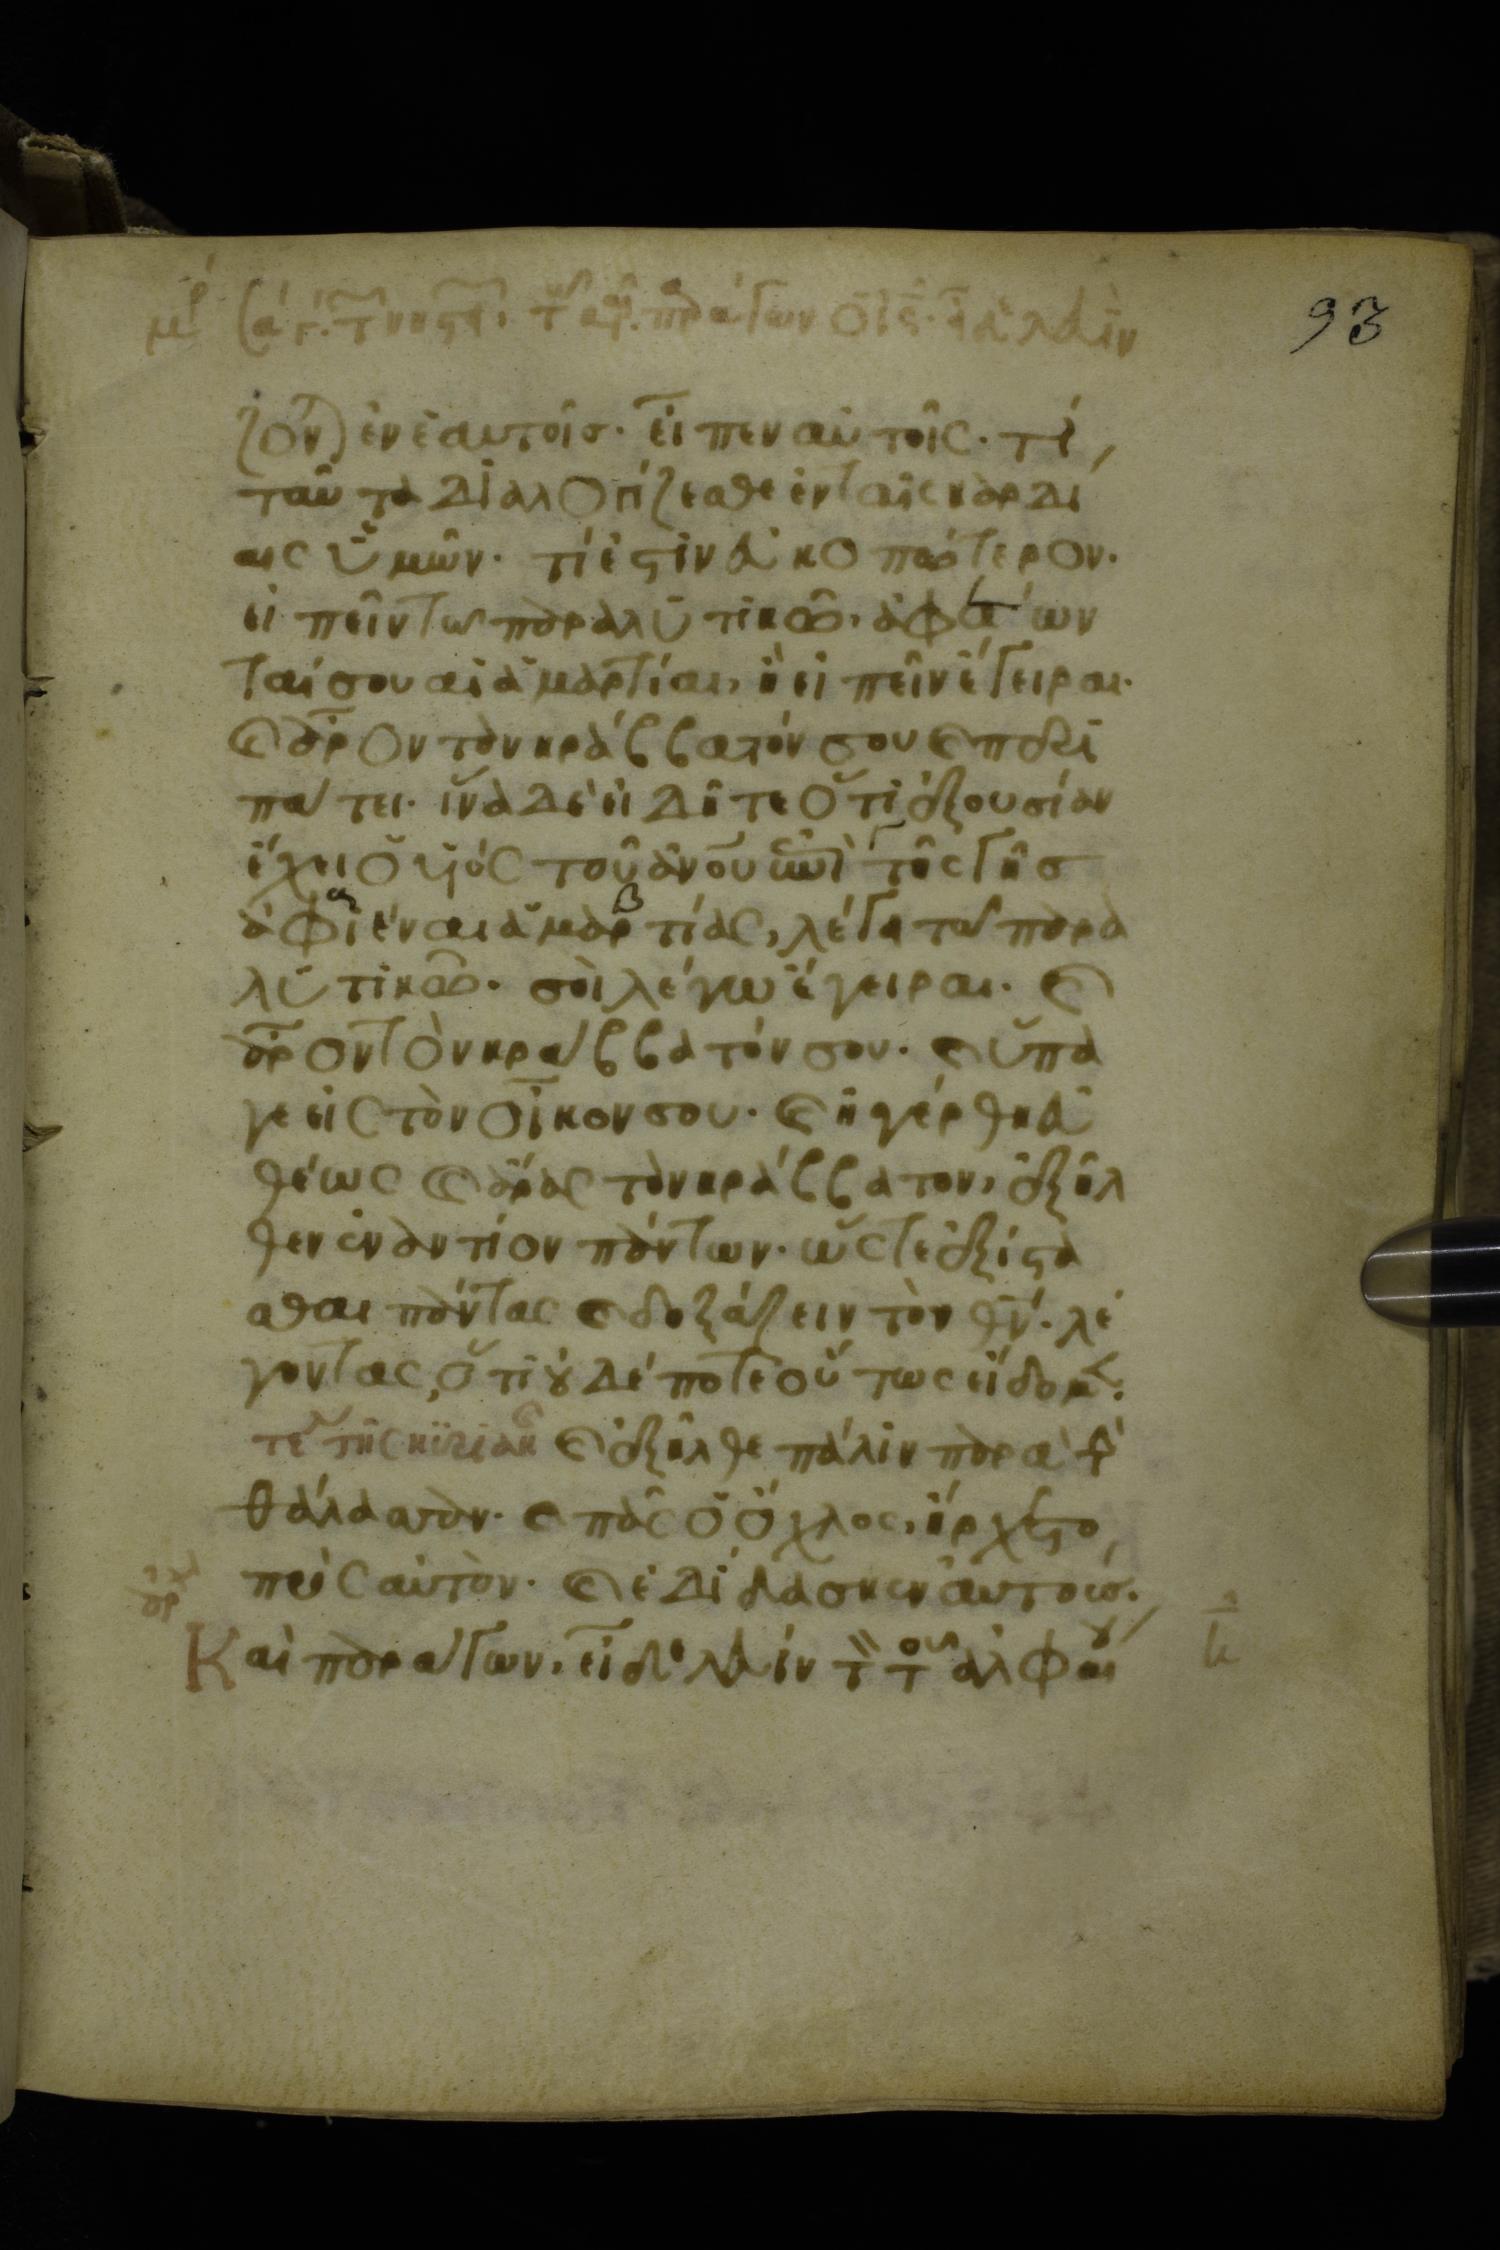 93
ζον) ἐν ἑαυτοῖς. εἶπεν αὐτοῖς. τί
ταῦτα διαλογίζεσθε ἐν ταῖς καρδί
αις ὑμῶν. τί ἐστιν εὐκοπώτερον.
εἰπεῖν τῶ παραλυτικῶ, ἀφέων
ταί σου αἱ ἁμαρτίαι, ἢ εἰπεῖν ἔγειραι.
κ ἆρον τὸν κράββατόν σου κ περι
πάτει. ἵνα δὲ εἰδῆτε ὅτι ἐξουσίαν
ἔχει ὁ υἱός τοῦ ἀνου ἐπὶ τῆς γῆς
ἀφιέναι ἁμαρτίας, λέγει τῶ παρα
λυτικῶ. σοὶ λέγω ἔγειραι. κ
ἆρον τὸν κράββατόν σου. κ ὕπα
γε εἰς τὸν οἶκον σου. κ ἠγέρθη εὐ
θέως κ ἄρας τὸν κράββατον, ἐξῆλ
θεν ἐναντίον πάντων. ὥστε ἐξίστα
σθαι πάντας κ δοξάζειν τὸν θν. λέ
γοντας, ὅτι οὐδέποτε οὕτως εἴδομεν.
τε τῆς κυριακ κ ἐξῆλθε πάλιν παρὰ τὴν
θάλασσαν. κ πᾶς ὁ ὄχλος, ἤρχετο
πρὸς αὐτὸν. κ ἐδίδασκεν αὐτούς.
αρχ
Καὶ παράγων, εἶδε λευὶν τὸν τοῦ ἀλφαίου